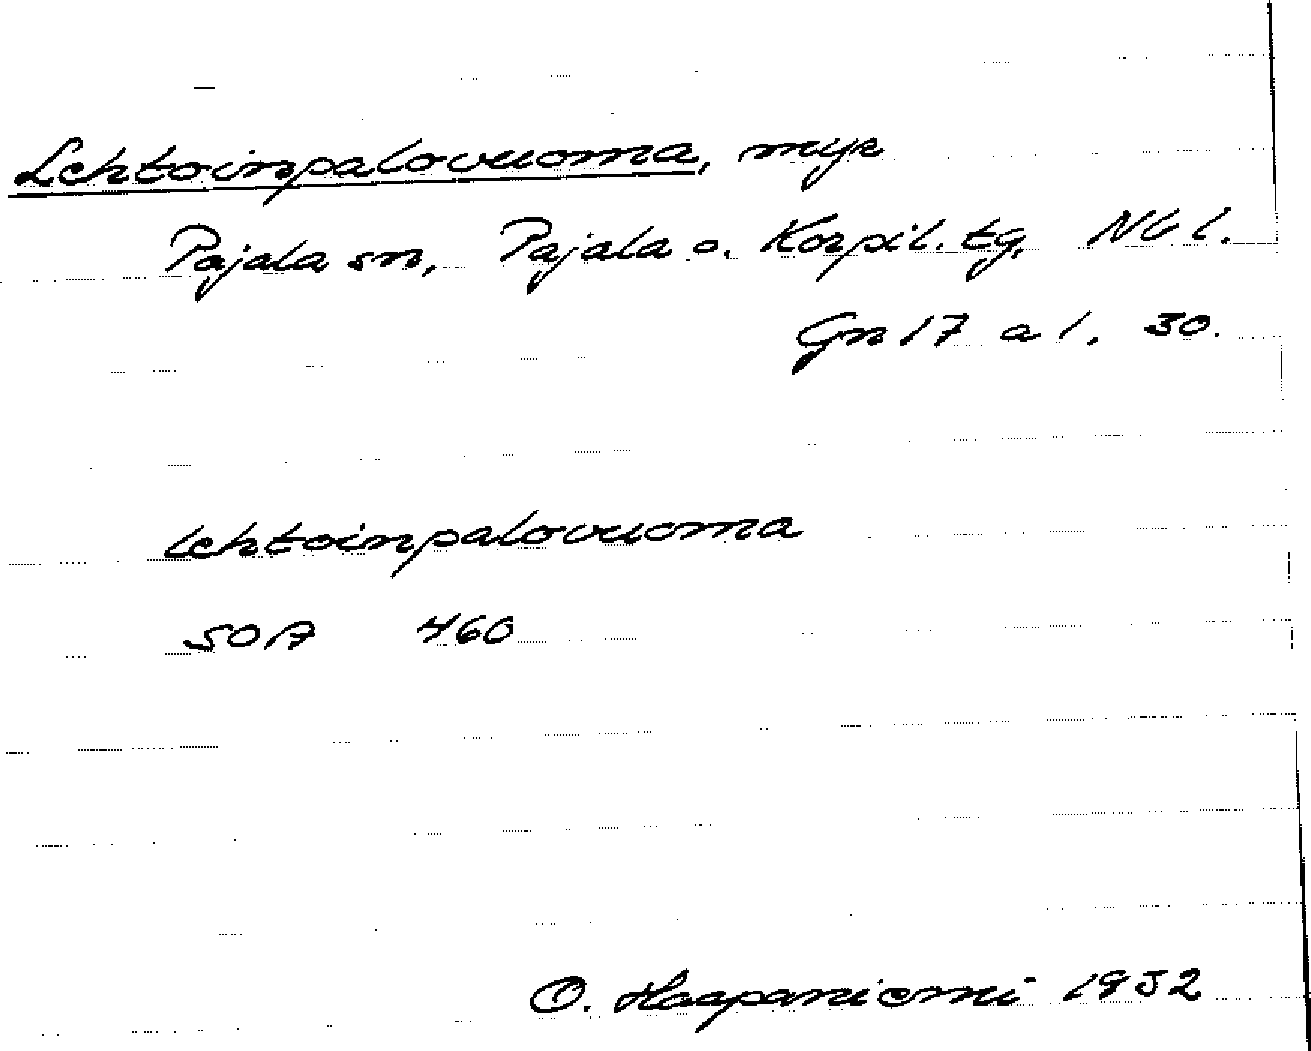 Lehtoinpalovuoma, myr
Pajala sn, Pajala o. Korpil. tg, Nb l.
Gn 17 a 1. 30.
lehtoinpalovuoma
SOA 460
O. Haapaniemi 1932